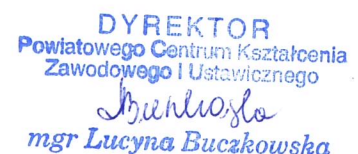 DYREKTOR
Powiatowego Centrum Kształcenia
Zawodowego i Ustawicznego
mgr Lucyna Buczkowska